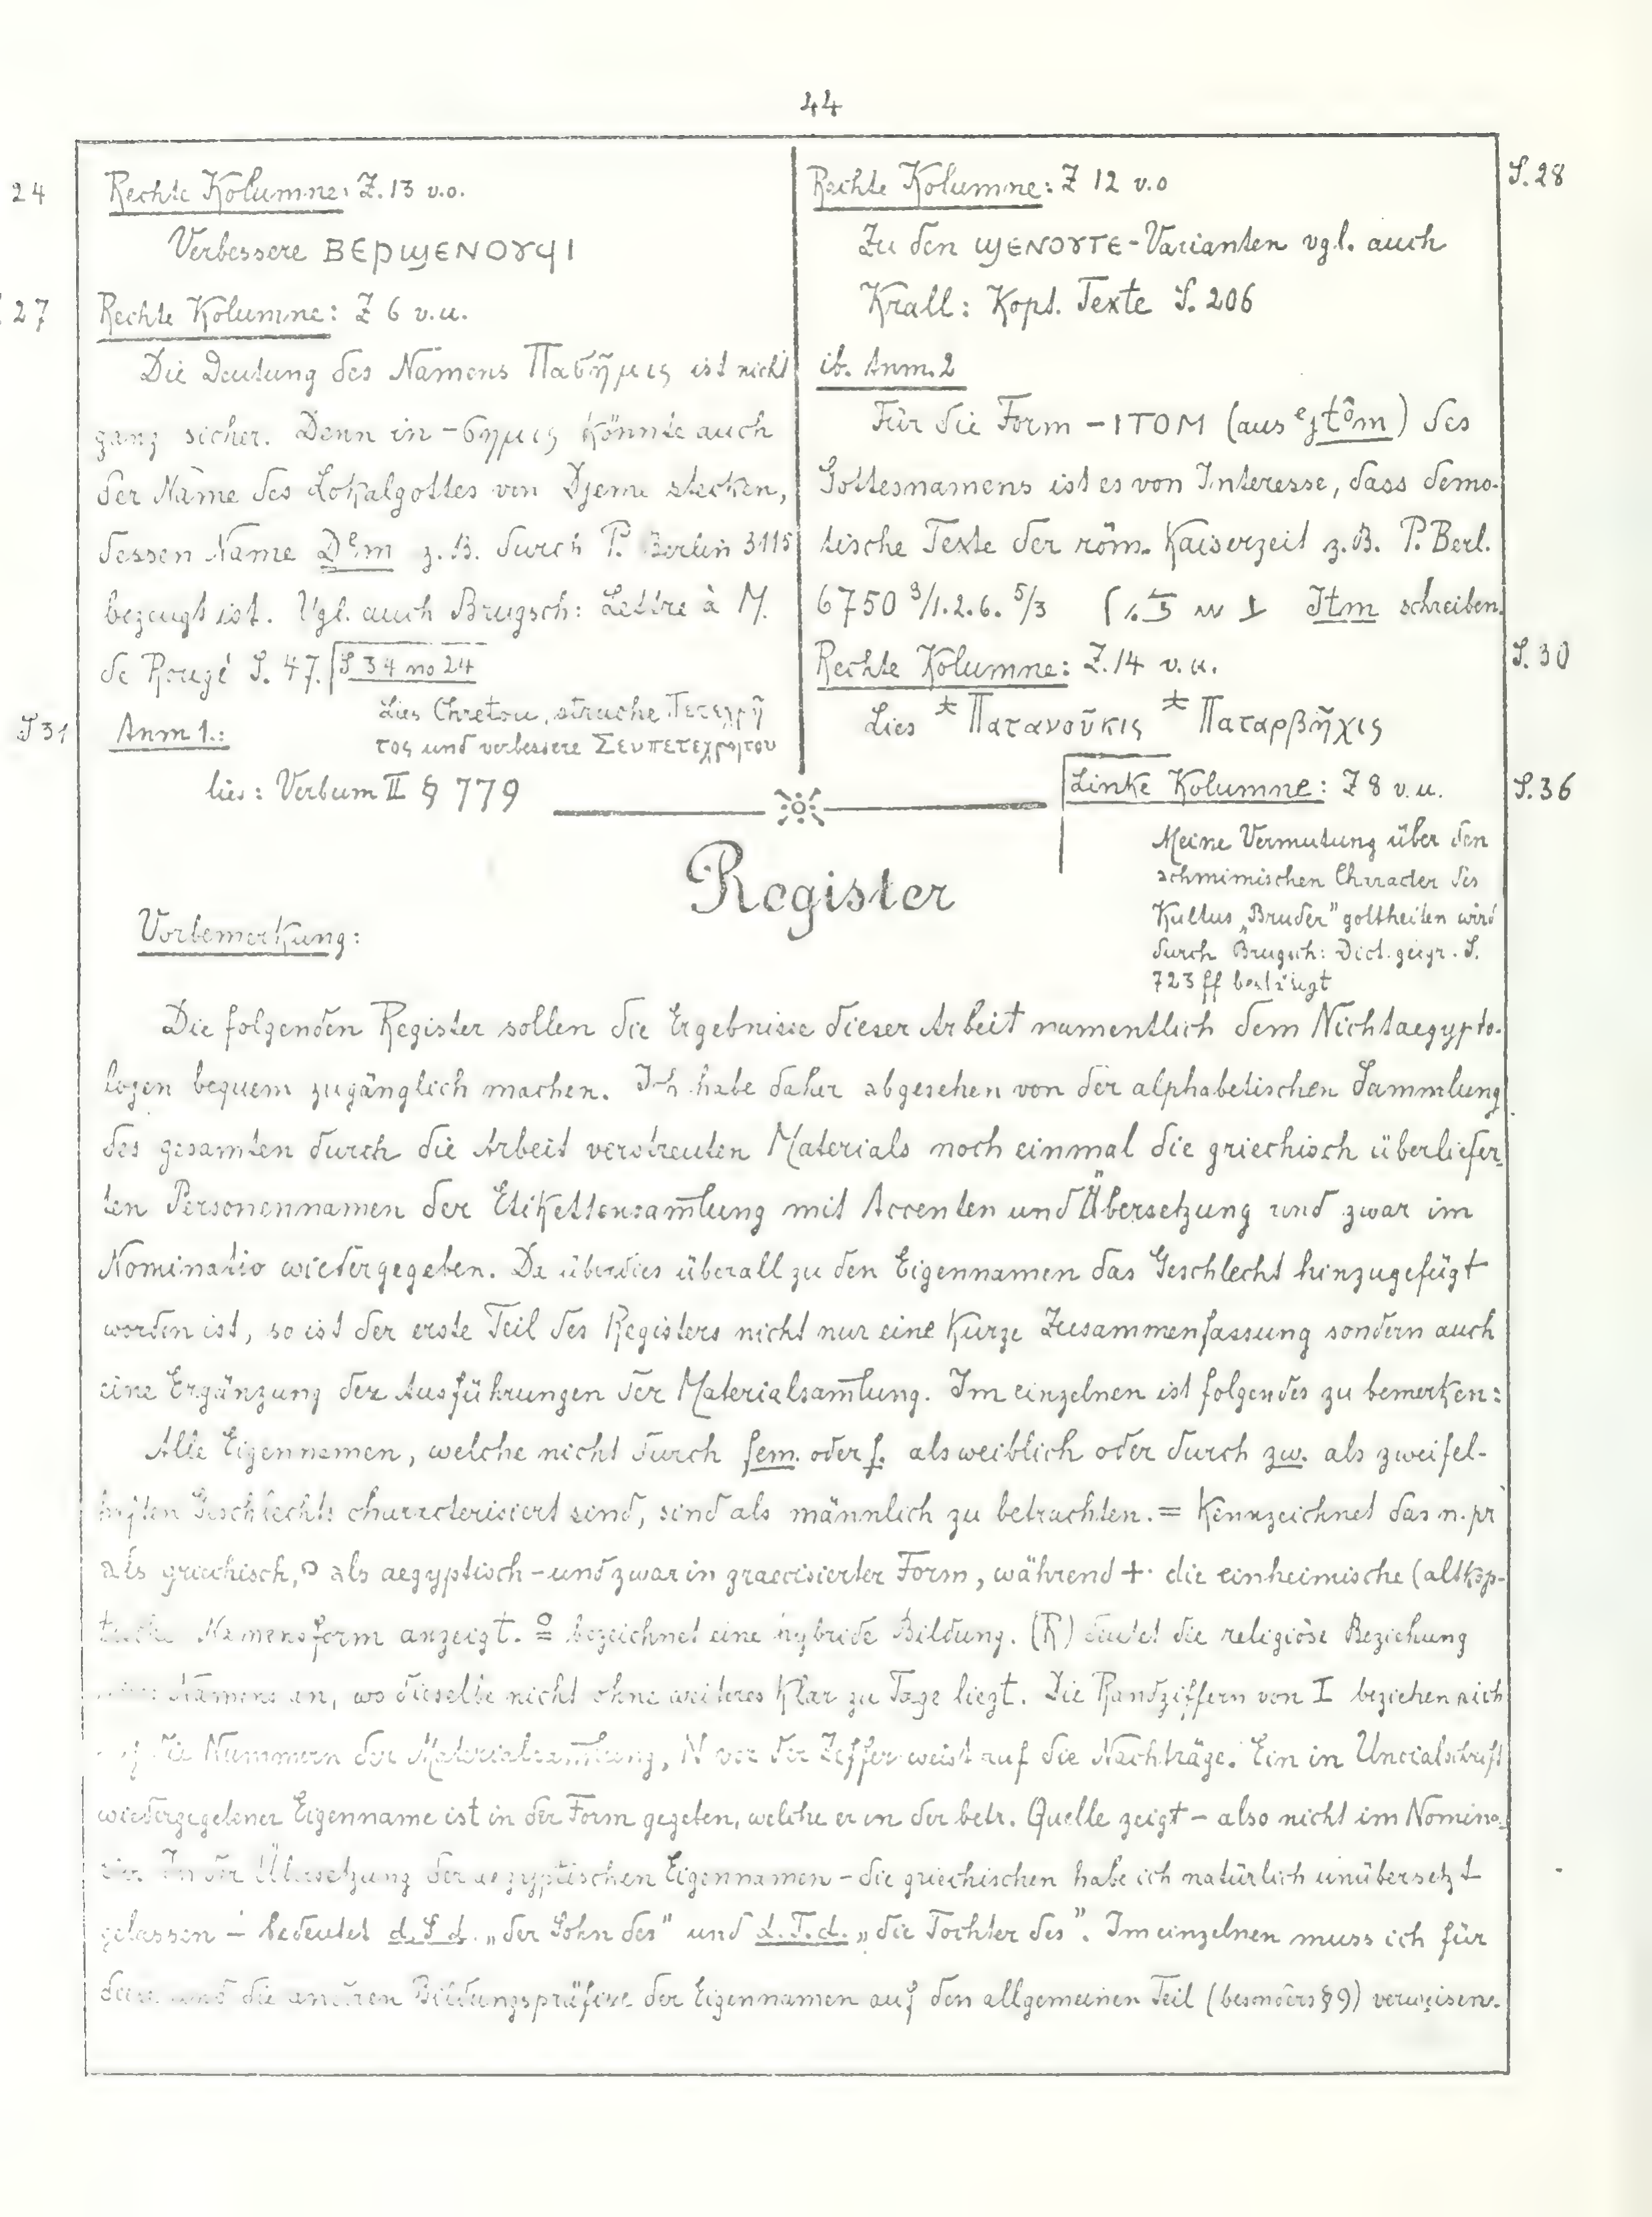 44
24
Rechte Kolumne: Z. 13 v.o.
Verbessere ⲂⲈⲢϢⲈⲚⲞⲨϤⲒ
27
Rechte Kolumne: Z 6 v.u.
Die Deutung des Namens Πασῆμις ist nicht
ganz sicher. Denn in -σημις könnte auch
der Name des Lokalgottes von Djeme stecken,
dessen Name Dᵉm z. B. durch P. Berlin 3115
bezeugt ist. Vgl. auch Brugsch: Lettre à M.
de Rougé S. 47.
S 34 no 24
Lies Chretou, streiche Πετεχρῆ
τος und verbessere Σενπετεχρῆτου
S 31
Anm 1.:
lies: Verbum II § 779
S. 28
Rechte Kolumne: Z 12 v.o
Zu den ϢⲈⲚⲞⲨⲦⲈ-Varianten vgl. auch
Krall: Kopt. Texte S. 206
ib. Anm. 2
Für die Form -ⲒⲦⲞⲘ (aus ᵉjtôm) des
Gottesnamens ist es von Interesse, dass demo-
tische Texte der röm. Kaiserzeit z. B. P. Berl.
6750 3/1.2.6. 5/3 Itm schreiben.
S. 30
Rechte Kolumne: Z. 14 v. u.
Lies *Πατανοῦκις *Παταρβῆχις
S. 36
Linke Kolumne: Z 8 v. u.
Meine Vermutung über den
achmimischen Character des
Kultus „Bruder" gottheiten wird
durch Brugsch: Dict. geogr. S.
723 ff bestätigt
Register
Vorbemerkung:
Die folgenden Register sollen die Ergebnisse dieser Arbeit namentlich dem Nichtaegypto-
logen bequem zugänglich machen. Ich habe daher abgesehen von der alphabetischen Sammlung
des gesamten durch die Arbeit verstreuten Materials noch einmal die griechisch überliefer-
ten Personennamen der Etikettensam̅lung mit Accenten und Übersetzung und zwar im
Nominativ wiedergegeben. Da überdies überall zu den Eigennamen das Geschlecht hinzugefügt
worden ist, so ist der erste Teil des Registers nicht nur eine kurze Zusammenfassung sondern auch
eine Ergänzung der Ausführungen der Materialsam̅lung. Im einzelnen ist folgendes zu bemerken:
Alle Eigennamen, welche nicht durch fem. oder f. als weiblich oder durch zw. als zweifel-
haften Geschlechts characterisiert sind, sind als männlich zu betrachten. = kennzeichnet das n. pr
als griechisch, o als aegyptisch - und zwar in graecisierter Form, während + die einheimische (altkop-
tische Namensform anzeigt. ⩦ bezeichnet eine hybride Bildung. (R) deutet die religiöse Beziehung
Namens an, wo dieselbe nicht ohne weiteres klar zu Tage liegt. Die Randziffern von I beziehen sich
auf die Nummern der Materialsam̅lung, N vor der Ziffer weist auf die Nachträge. Ein in Uncialschrift
wiedergegebener Eigenname ist in der Form gegeben, welche er in der betr. Quelle zeigt - also nicht im Nomina-
tiv. In der Übersetzung der aegyptischen Eigennamen - die griechischen habe ich natürlich unübersetzt
gelassen - bedeutet d. S d. „der Sohn des" und d. T. d. „die Tochter des". Im einzelnen muss ich für
diese und die anderen Bildungspräfixe der Eigennamen auf den allgemeinen Teil (besonders § 9) verweisen.